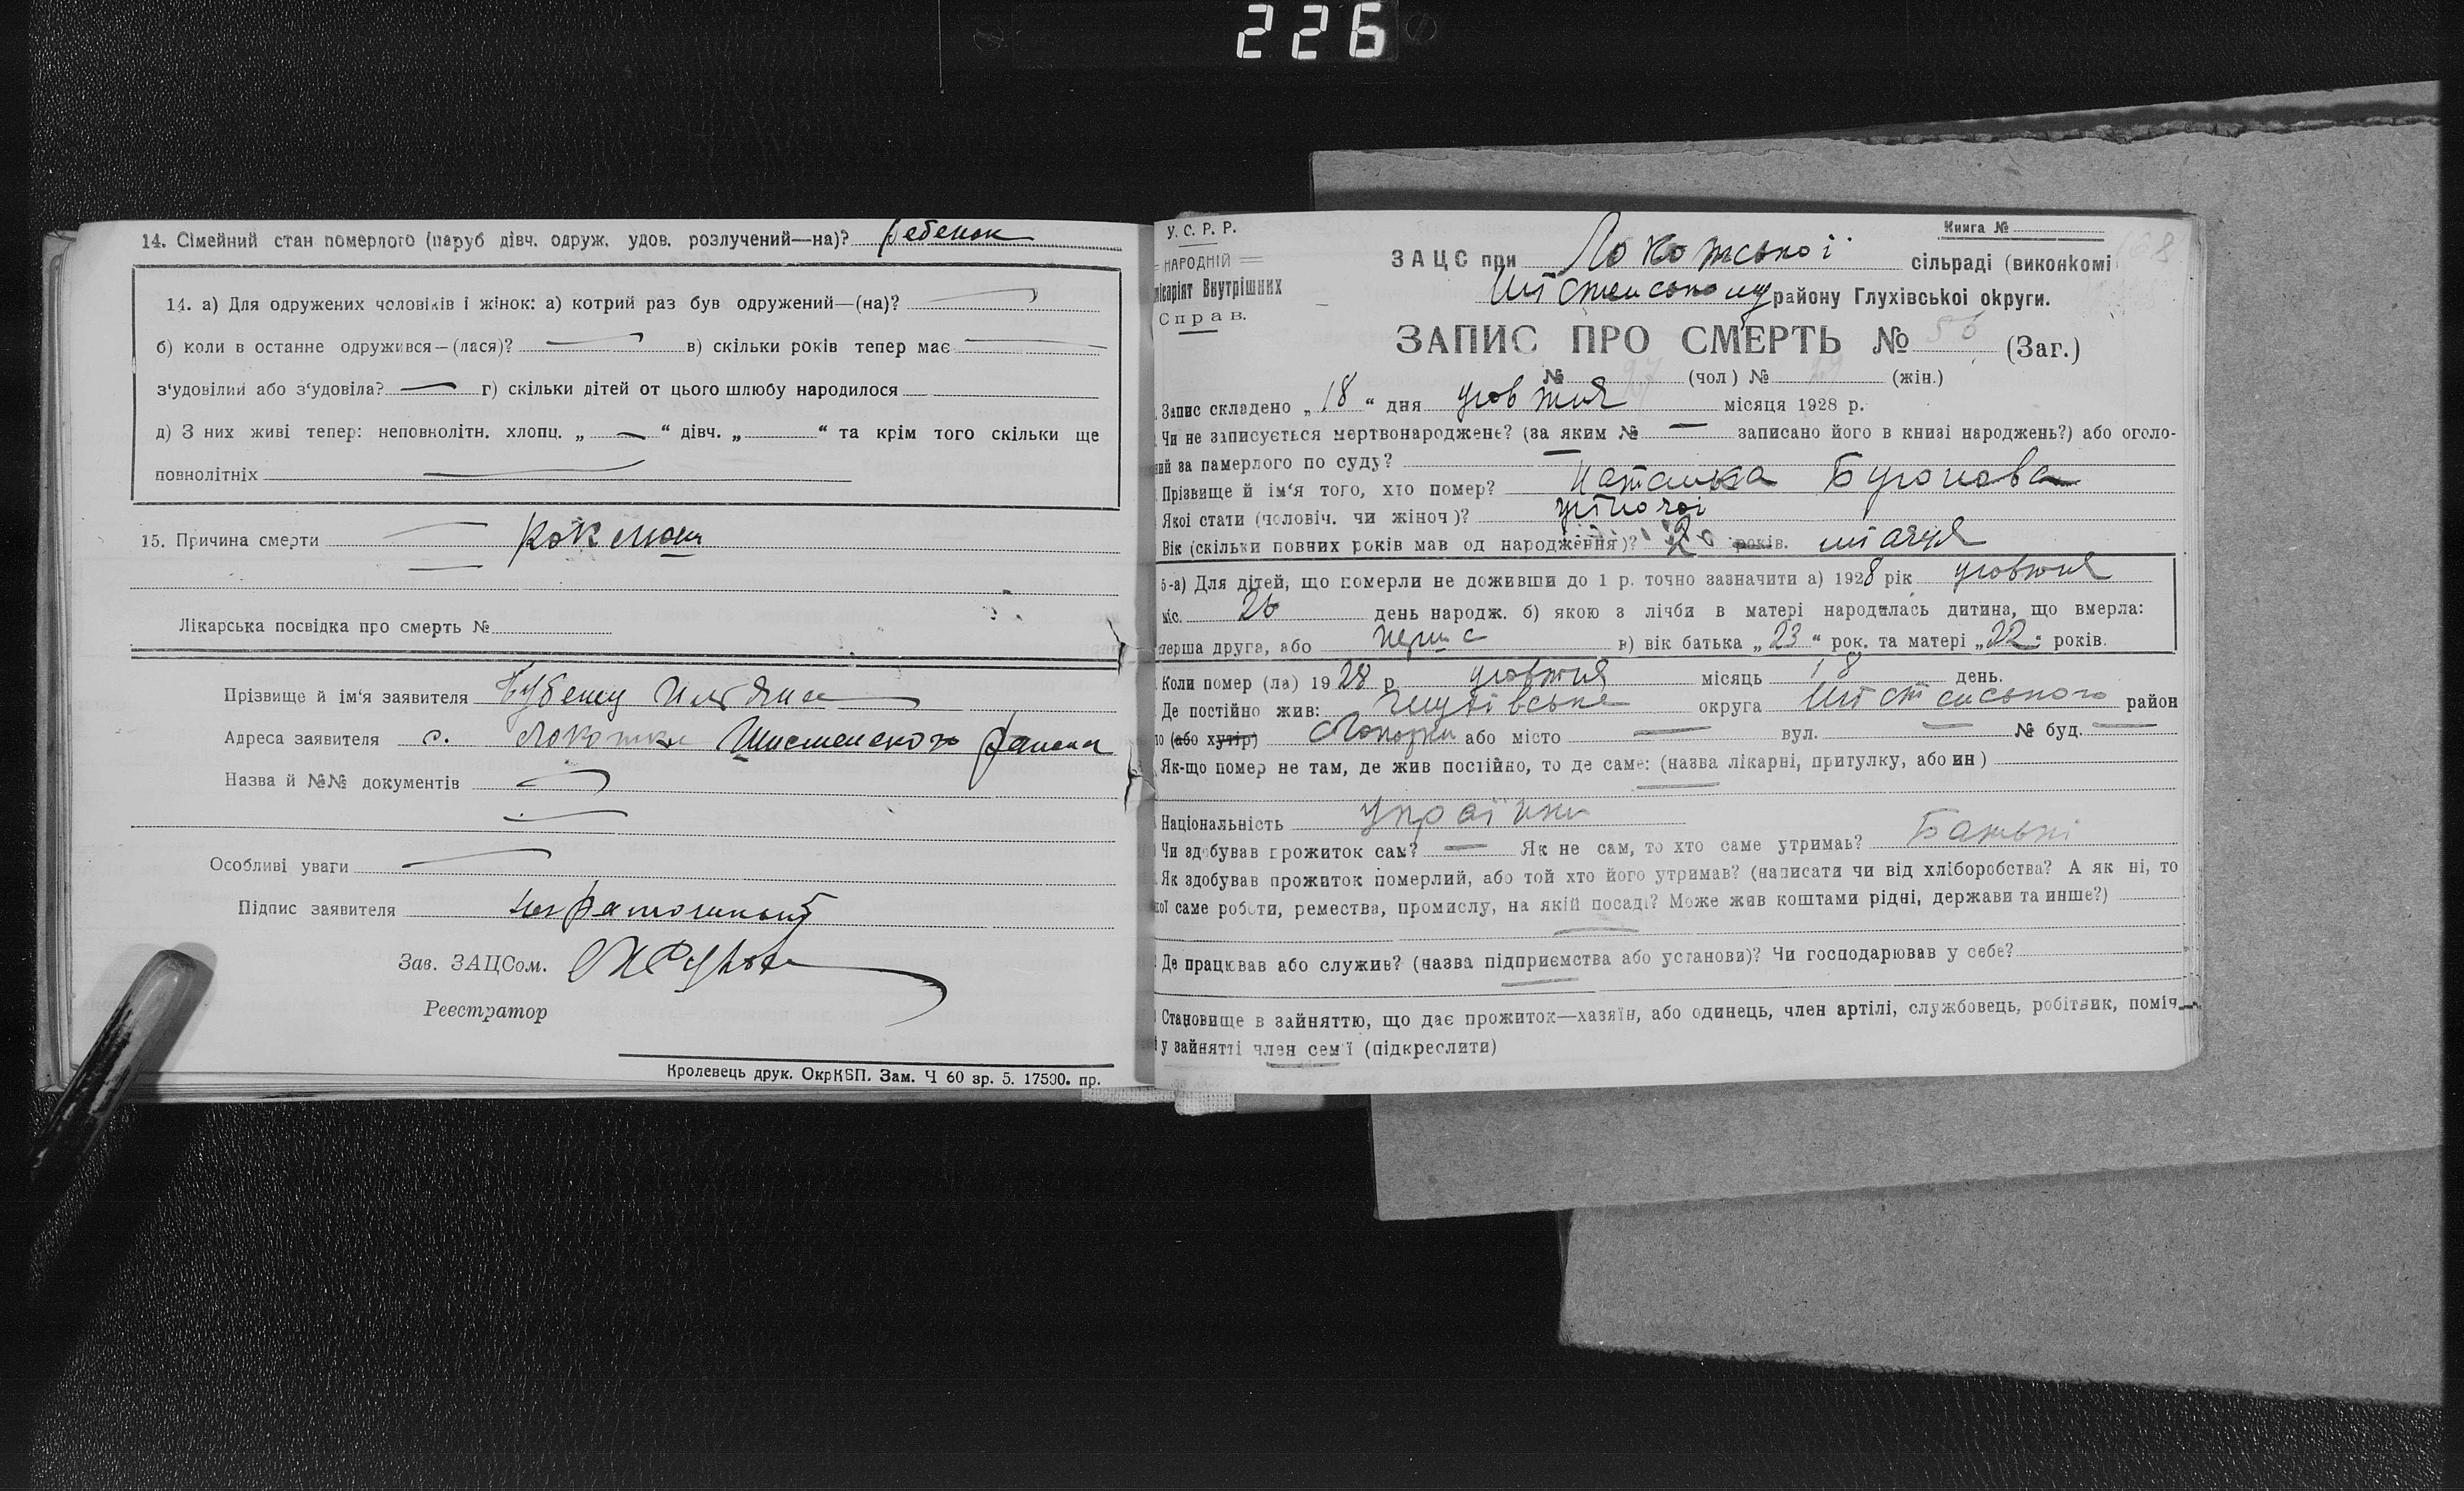 226
14. Сімейний стан померлого (паруб дівч. одруж. удов. розлучений—на)? ребенок
14. а) Для одружених чоловіків і жінок: а) котрий раз був одружений—(на)?
б) коли в останне одружився—(лася)? в) скільки років тепер має
з'удовілий або з'удовіла? г) скільки дітей от цього шлюбу народилося
д) З них живі тепер: неповнолітн. хлопц. „ “ дівч. „ “ та крім того скільки ще
повнолітніх
15. Причина смерти коклюш
Лікарська посвідка про смерть №
Прізвище й ім'я заявителя
Адреса заявителя с. Локотки Шистенского района
Назва й №№ документів
Особливі уваги
Підпис заявителя неграмотний
Зав. ЗАЦСом.
Реєстратор
Кролевець друк. ОкрКВП. Зам. Ч 60 зр. 5. 17500. пр.
У. С. Р. Р.
НАРОДНІЙ
місаріят Внутрішних
Справ.
Книга №
ЗАЦС при Локотської сільраді (виконкомі
району Глухівської округи.
ЗАПИС ПРО СМЕРТЬ № 56 (Заг.)
№ 27 (чол) № 29 (жін.)
Запис складено „ 18 “ дня жовтня місяця 1928 р.
Чи не записується мертвонароджене? (за яким № записано його в книзі народжень?) або оголо-
ий за памерлого по суду?
Прізвище й ім'я того, хто помер? Наталка
Якої стати (чоловіч. чи жіноч)? жіночої
Вік (скільки повних років мав од народження)? років.
5-а) Для дітей, що померли не доживши до 1 р. точно зазначити а) 1928 рік жовтня
міс. 26 день народж. б) якою з лічби в матері народилась дитина, що вмерла:
перша друга, або перша в) вік батька „23“ рок. та матері „22“ років.
Коли помер (ла) 1928 р. жовтня місяць 18 день.
Де постійно жив: Глухівська округа район
ло (або хутір) Локотки або місто вул. № буд.
Як-що помер не там, де жив постійно, то де саме: (назва лікарні, притулку, або ин)
Національність Українка
Чи здобував прожиток сам? Як не сам, то хто саме утримав? Батьки
Як здобував прожиток померлий, або той хто його утримав? (написати чи від хліборобства? А як ні, то
кої саме роботи, ремества, промислу, на якій посаді? Може жив коштами рідні, держави та инше?)
Де працював або служив? (назва підприємства або установи)? Чи господарював у себе?
Становище в зайняттю, що дає прожиток—хазяїн, або одинець, член артілі, службовець, робітник, поміч
у зайнятті член сем'ї (підкреслити)